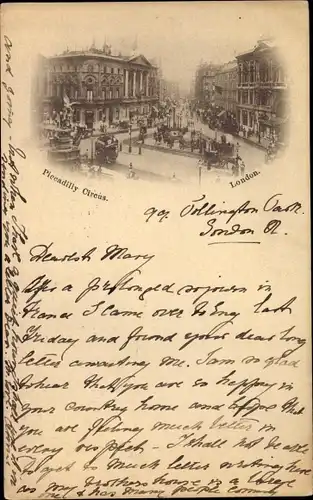 Piccadilly Circus.
London.
99, Tollington Park.
London N.
Dearest Mary
After a prolonged sojourn in
France I came over to Eng last
Friday and found your dear long
letter awaiting me. I am so glad
to hear that you are so happy in
your country home and hope that
you are feeling much better in
every respect - I shall not be able
to get to much letter writing here
as my brothers house is a large
one & has many people coming